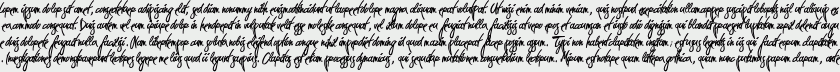 Lorem ipsum dolor sit amet, consectetuer adipiscing elit, sed diam nonummy nibh euismod tincidunt ut laoreet dolore magna aliquam erat volutpat. Ut wisi enim ad minim veniam, quis nostrud exerci tation ullamcorper suscipit lobortis nisl ut aliquip ex
ea commodo consequat. Duis autem vel eum iriure dolor in hendrerit in vulputate velit esse molestie consequat, vel illum dolore eu feugiat nulla facilisis at vero eros et accumsan et iusto odio dignissim qui blandit praesent luptatum zzril delenit augue
duis dolore te feugait nulla facilisi. Nam liber tempor cum soluta nobis eleifend option congue nihil imperdiet doming id quod mazim placerat facer possim assum. Typi non habent claritatem insitam; est usus legentis in iis qui facit eorum claritatem
. Investigationes demonstraverunt lectores legere me lius quod ii legunt saepius. Claritas est etiam processus dynamicus, qui sequitur mutationem consuetudium lectorum. Mirum est notare quam littera gothica, quam nunc putamus parum claram,